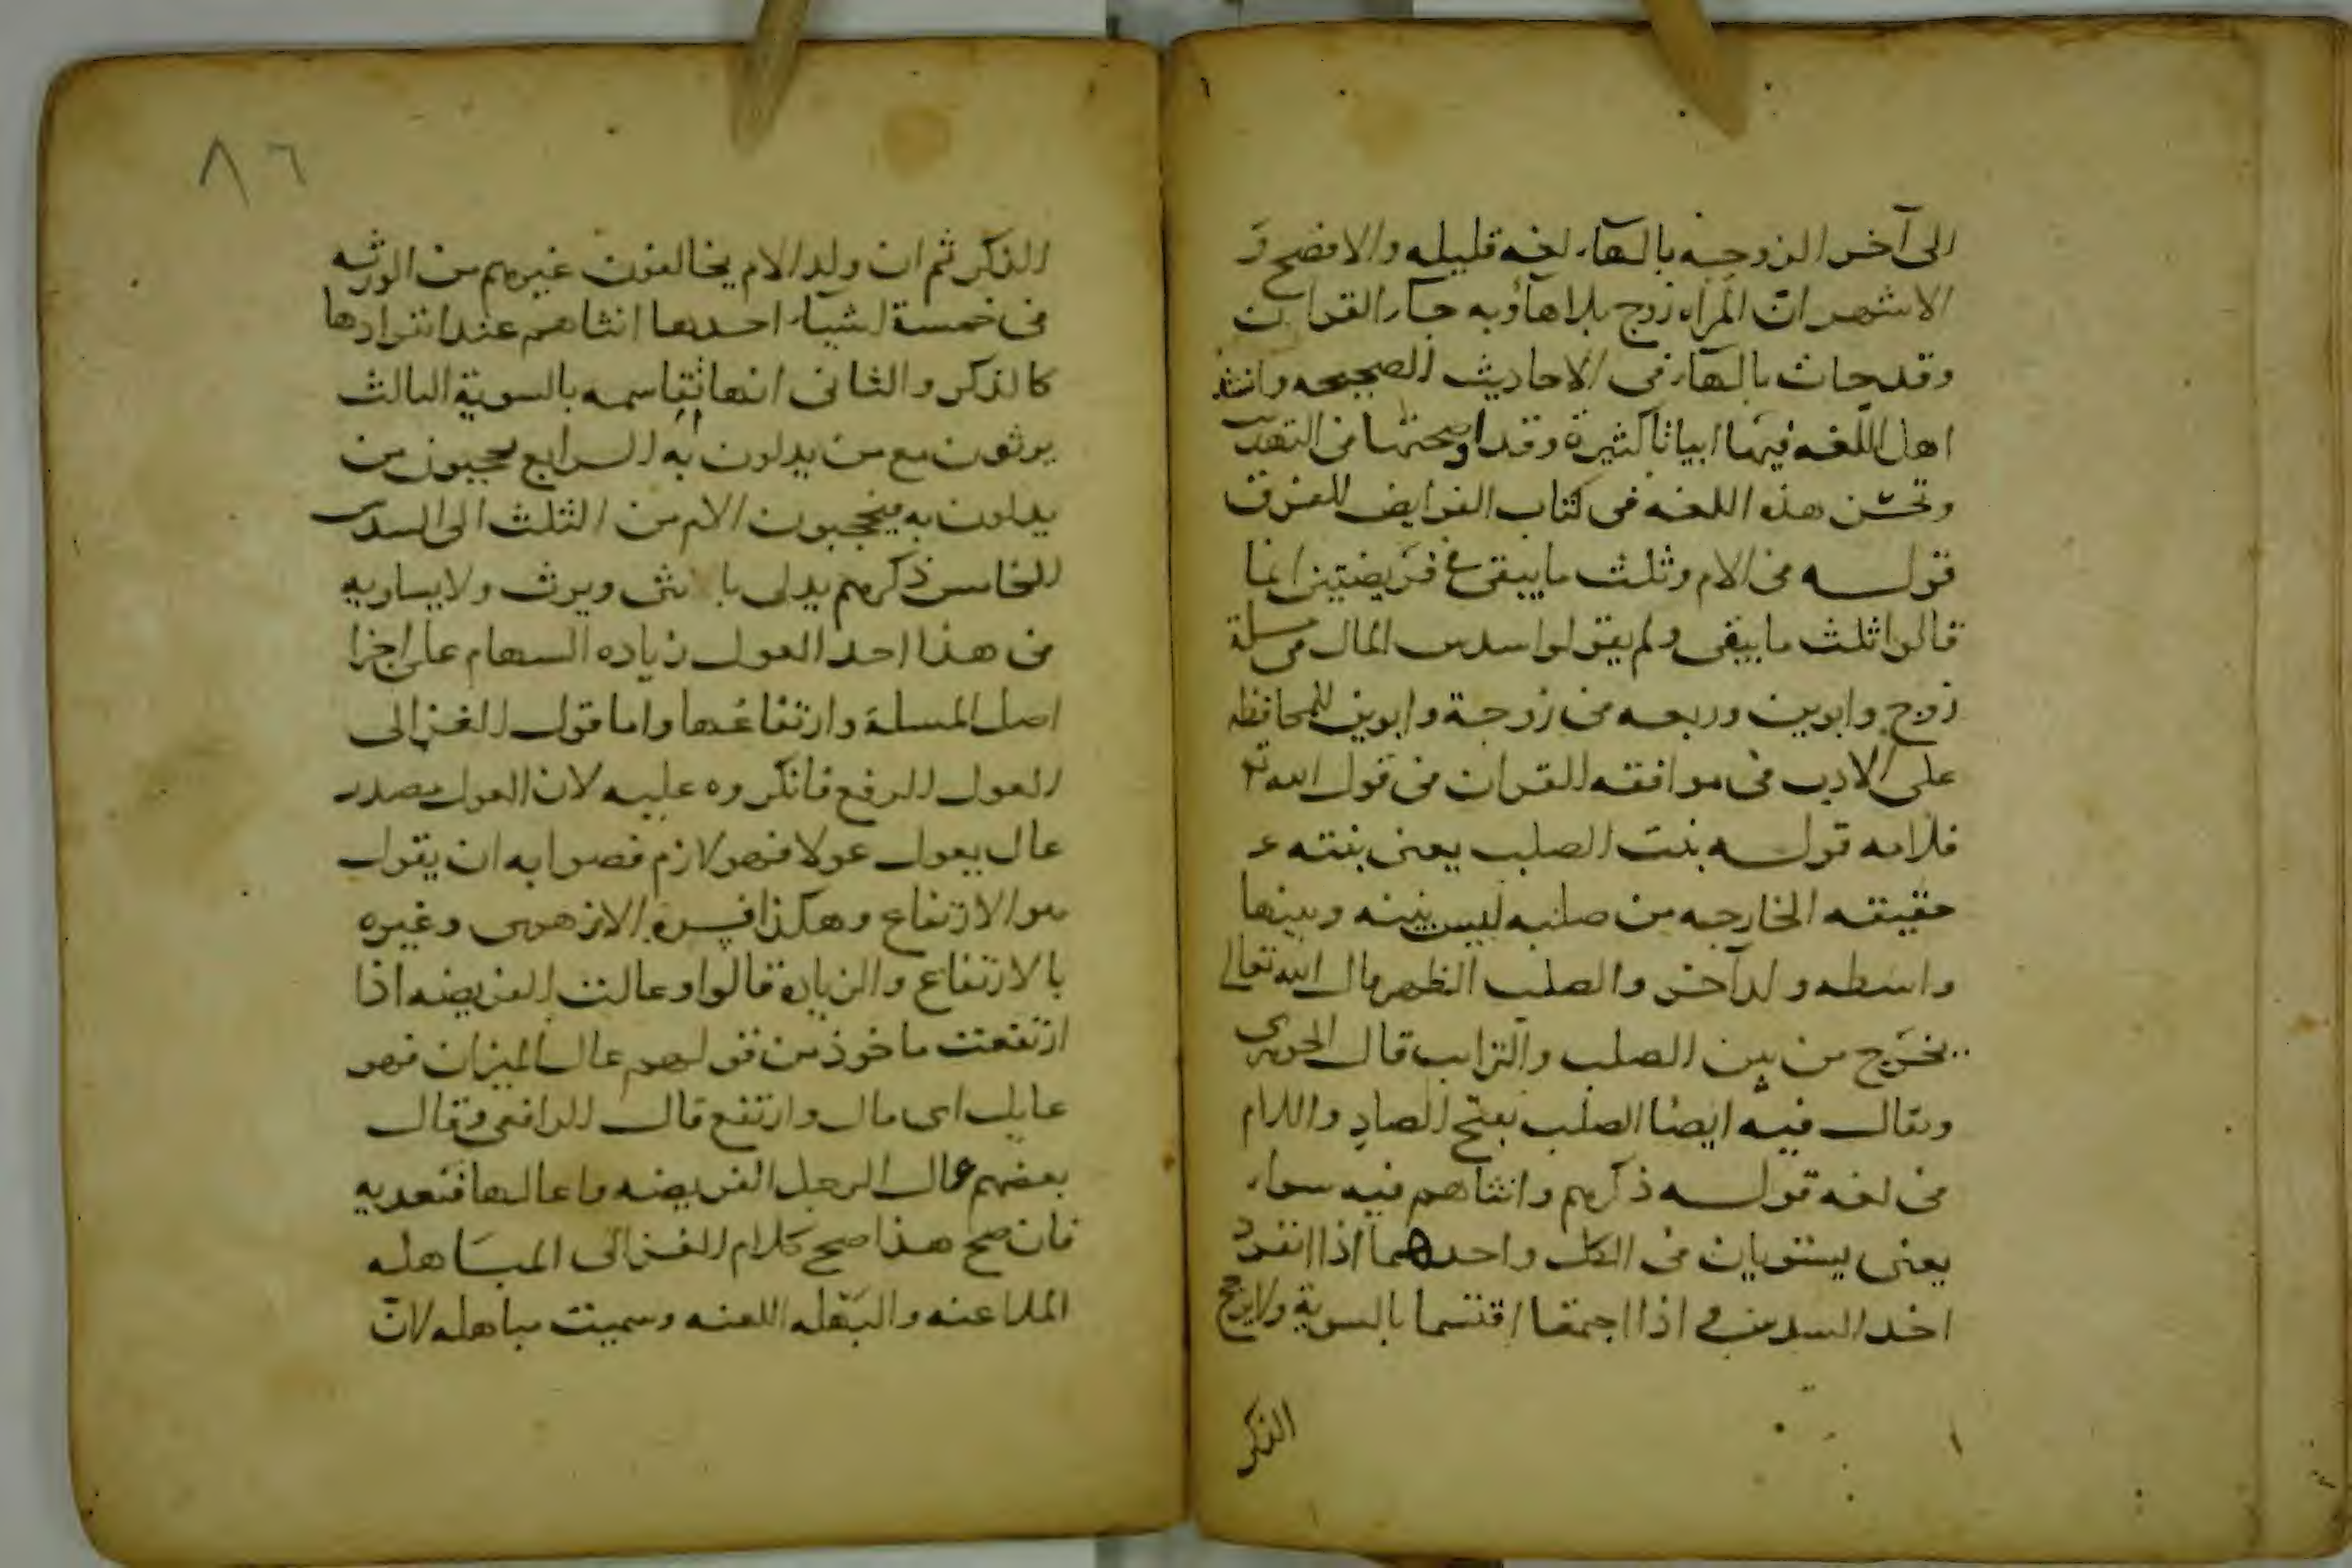 الى آخر الزوجه بالهاء لغه قليله والافصح و
الاشهر انّ المرأه زوج بلا هاء وبه جاء القران
وقد جات بالهاء فى الاحاديث الصحيحه وانشد
اهل اللغه فيها ابياتا كثيرة وقد اوضحتها فى التهذيب
وتحسن هذه اللغه فى كتاب الفرايض للفرق
قوله فى الام وثلث ما يبقى فى فريضتين انما
قالوا ثلث ما يبقى ولم يقولوا سدس المال فى مسلة
زوج وابوين وربعه فى زوجة وابوين للمحافظه
على الادب فى موافقه القران فى قول الله تعا
فلامه قوله بنت الصلب يعنى بنته
حقيقه الخارجه من صلبه ليس بينه وبينها
واسطه ولد آخر والصلب الظهر قال الله تعالى
يخرج من بين الصلب والترايب قال الجوهرى
ويقال فيه ايضا الصلب بفتح الصاد واللام
فى لغه قوله ذكرهم وانثاهم فيه سواء
يعنى يستويان فى الكل واحدهما اذا انفرد
اخد السدس و اذا اجتمعا اقتسما بالسوية ولا يرجح
الذكر
٨٦
الذكر ثم ان ولد الام يخالفون غيرهم من الورثه
فى خمسة اشياء احدها انثاهم عند انفرادها
كالذكر والثانى انها تقاسمه بالسوية الثالث
يرثون مع من يدلون به الرابع يحجبون من
يدلون به فيحجبون الام من الثلث الى السدس
الخامس ذكرهم يدلى بانثى ويرث ولا يساويه
فى هذا احد العول زياده السهام على اجزا
اصل المسلة وارتفاعها واما قول الغزالى
العول الرفع فانكروه عليه لان العول مصدر
عال يعول عولا فهو لازم فصوابه ان يقول
هو الارتفاع وهكذا فسره الازهرى وغيره
بالارتفاع والزيادة قالوا وعالت الفريضه اذا
ارتفعت ماخوذ من قولهم عال الميزان فهو
عايل اى مال وارتفع قال الرافعى وقال
بعضهم عال الرجل الفريضه واعالها فتعديه
فان صح هذا صح كلام الغزالى المباهله
الملاعنه والبَهْله اللعنه وسميت مباهله لانّ